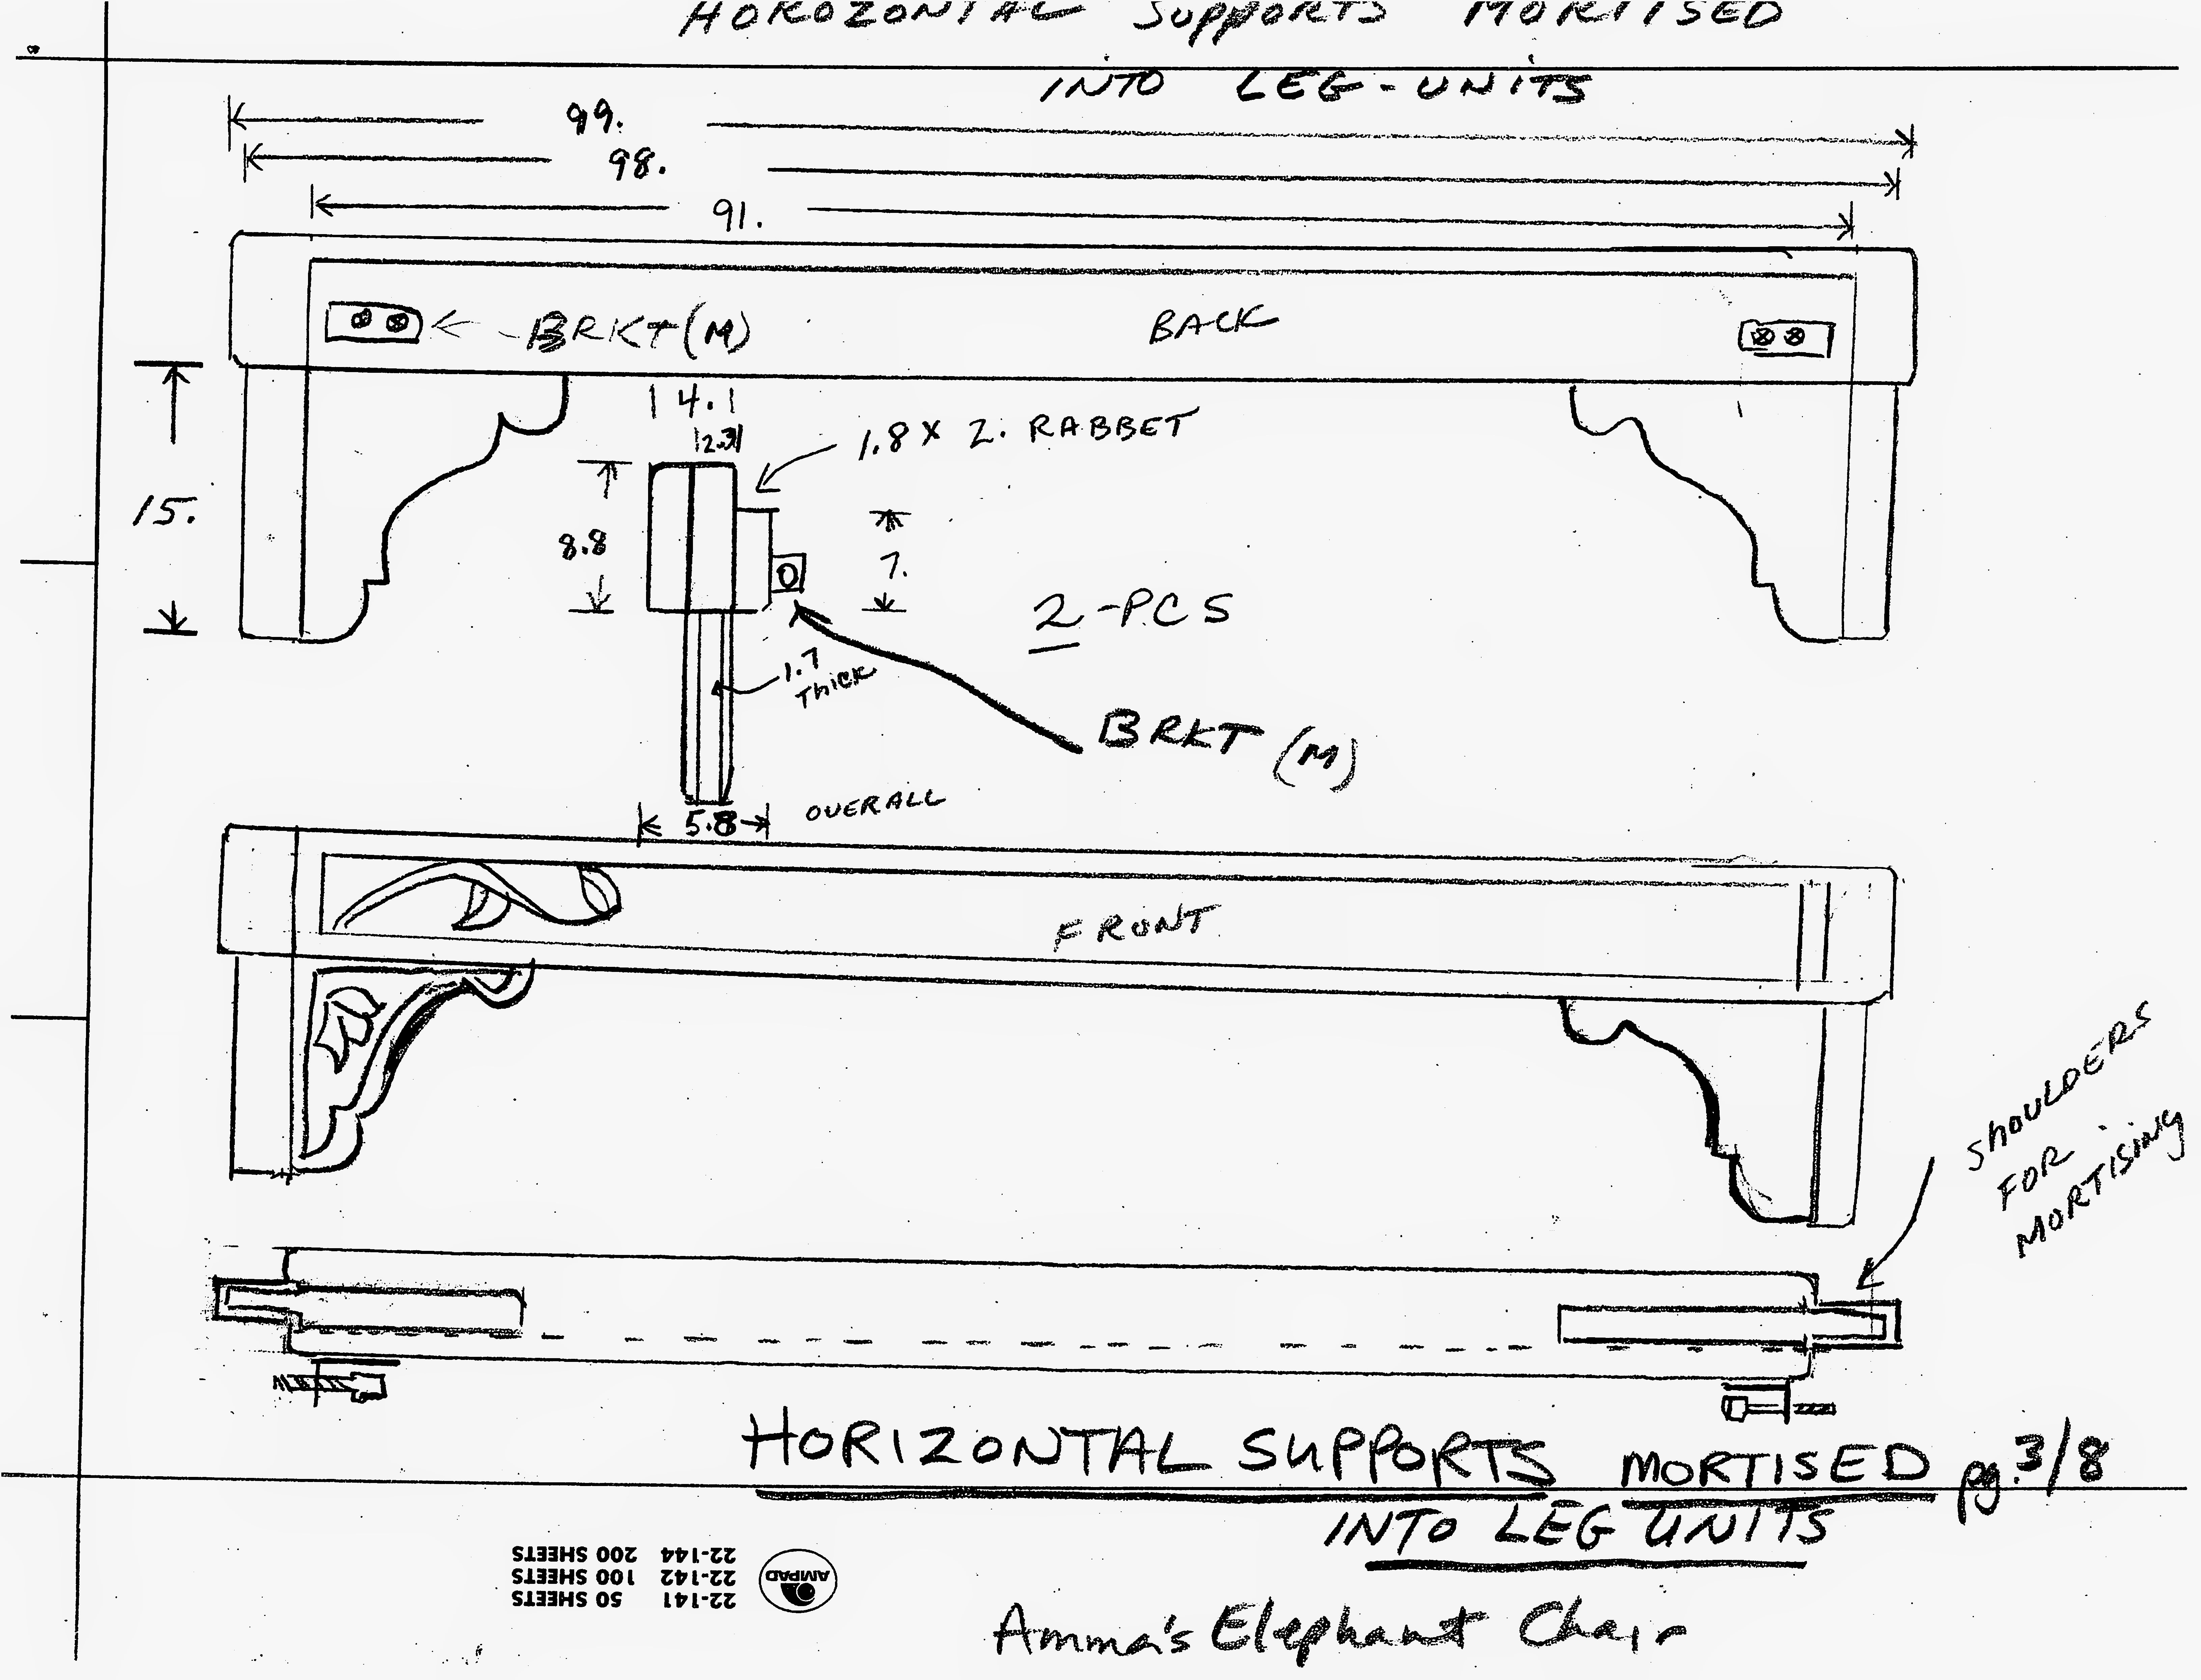 HOROZONTAL SUPPORTS MORTISED
INTO LEG-UNITS
99.
98.
91.
BRKT (M)
BACK
4.
2.3
1.8 X 2. RABBET
15.
8.8
7.
2-PCS
1.7
THICK
BRKT (M)
5.8 OVERALL
FRONT
SHOULDERS
FOR
MORTISING
HORIZONTAL SUPPORTS MORTISED pg. 3/8
INTO LEG UNITS
22-141 50 SHEETS
22-142 100 SHEETS
22-144 200 SHEETS
AMPAD
Amma's Elephant Chair